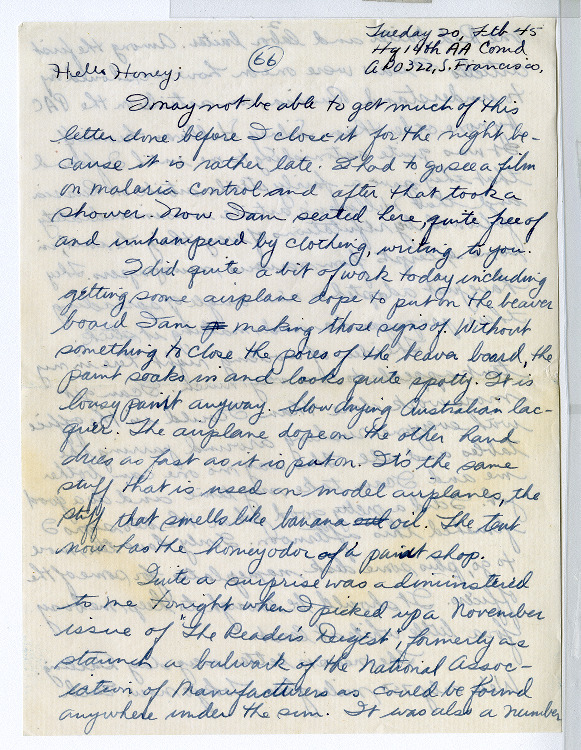 Tuesday 20, Feb 45
Hq 14th AA Comd
APO 322, S. Francisco,
66
Hello Honey;
I may not be able to get much of this
letter done before I close it for the night be-
cause it is rather late. I had to go see a film
on malaria control and after that took a
shower. Now I am seated here, quite free of
and unhampered by clothing, writing to you.
I did quite a bit of work today including
getting some airplane dope to put on the beaver
board I am making those signs of. Without
something to close the pores of the beaver board, the
paint soaks in and looks quite spotty. It is
lousy paint anyway. Slow drying Australian lac-
quer. The airplane dope on the other hand
dries as fast as it is put on. It's the same
stuff that is used on model airplanes, the
stuff that smells like banana oil. The tent
now has the homey odor of a paint shop.
Quite a surprise was administered
to me tonight when I picked up a November
issue of "The Reader's Digest", formerly as
staunch a bulwark of the National Assoc-
iation of Manufacturers as could be found
anywhere under the sun. It was also a number